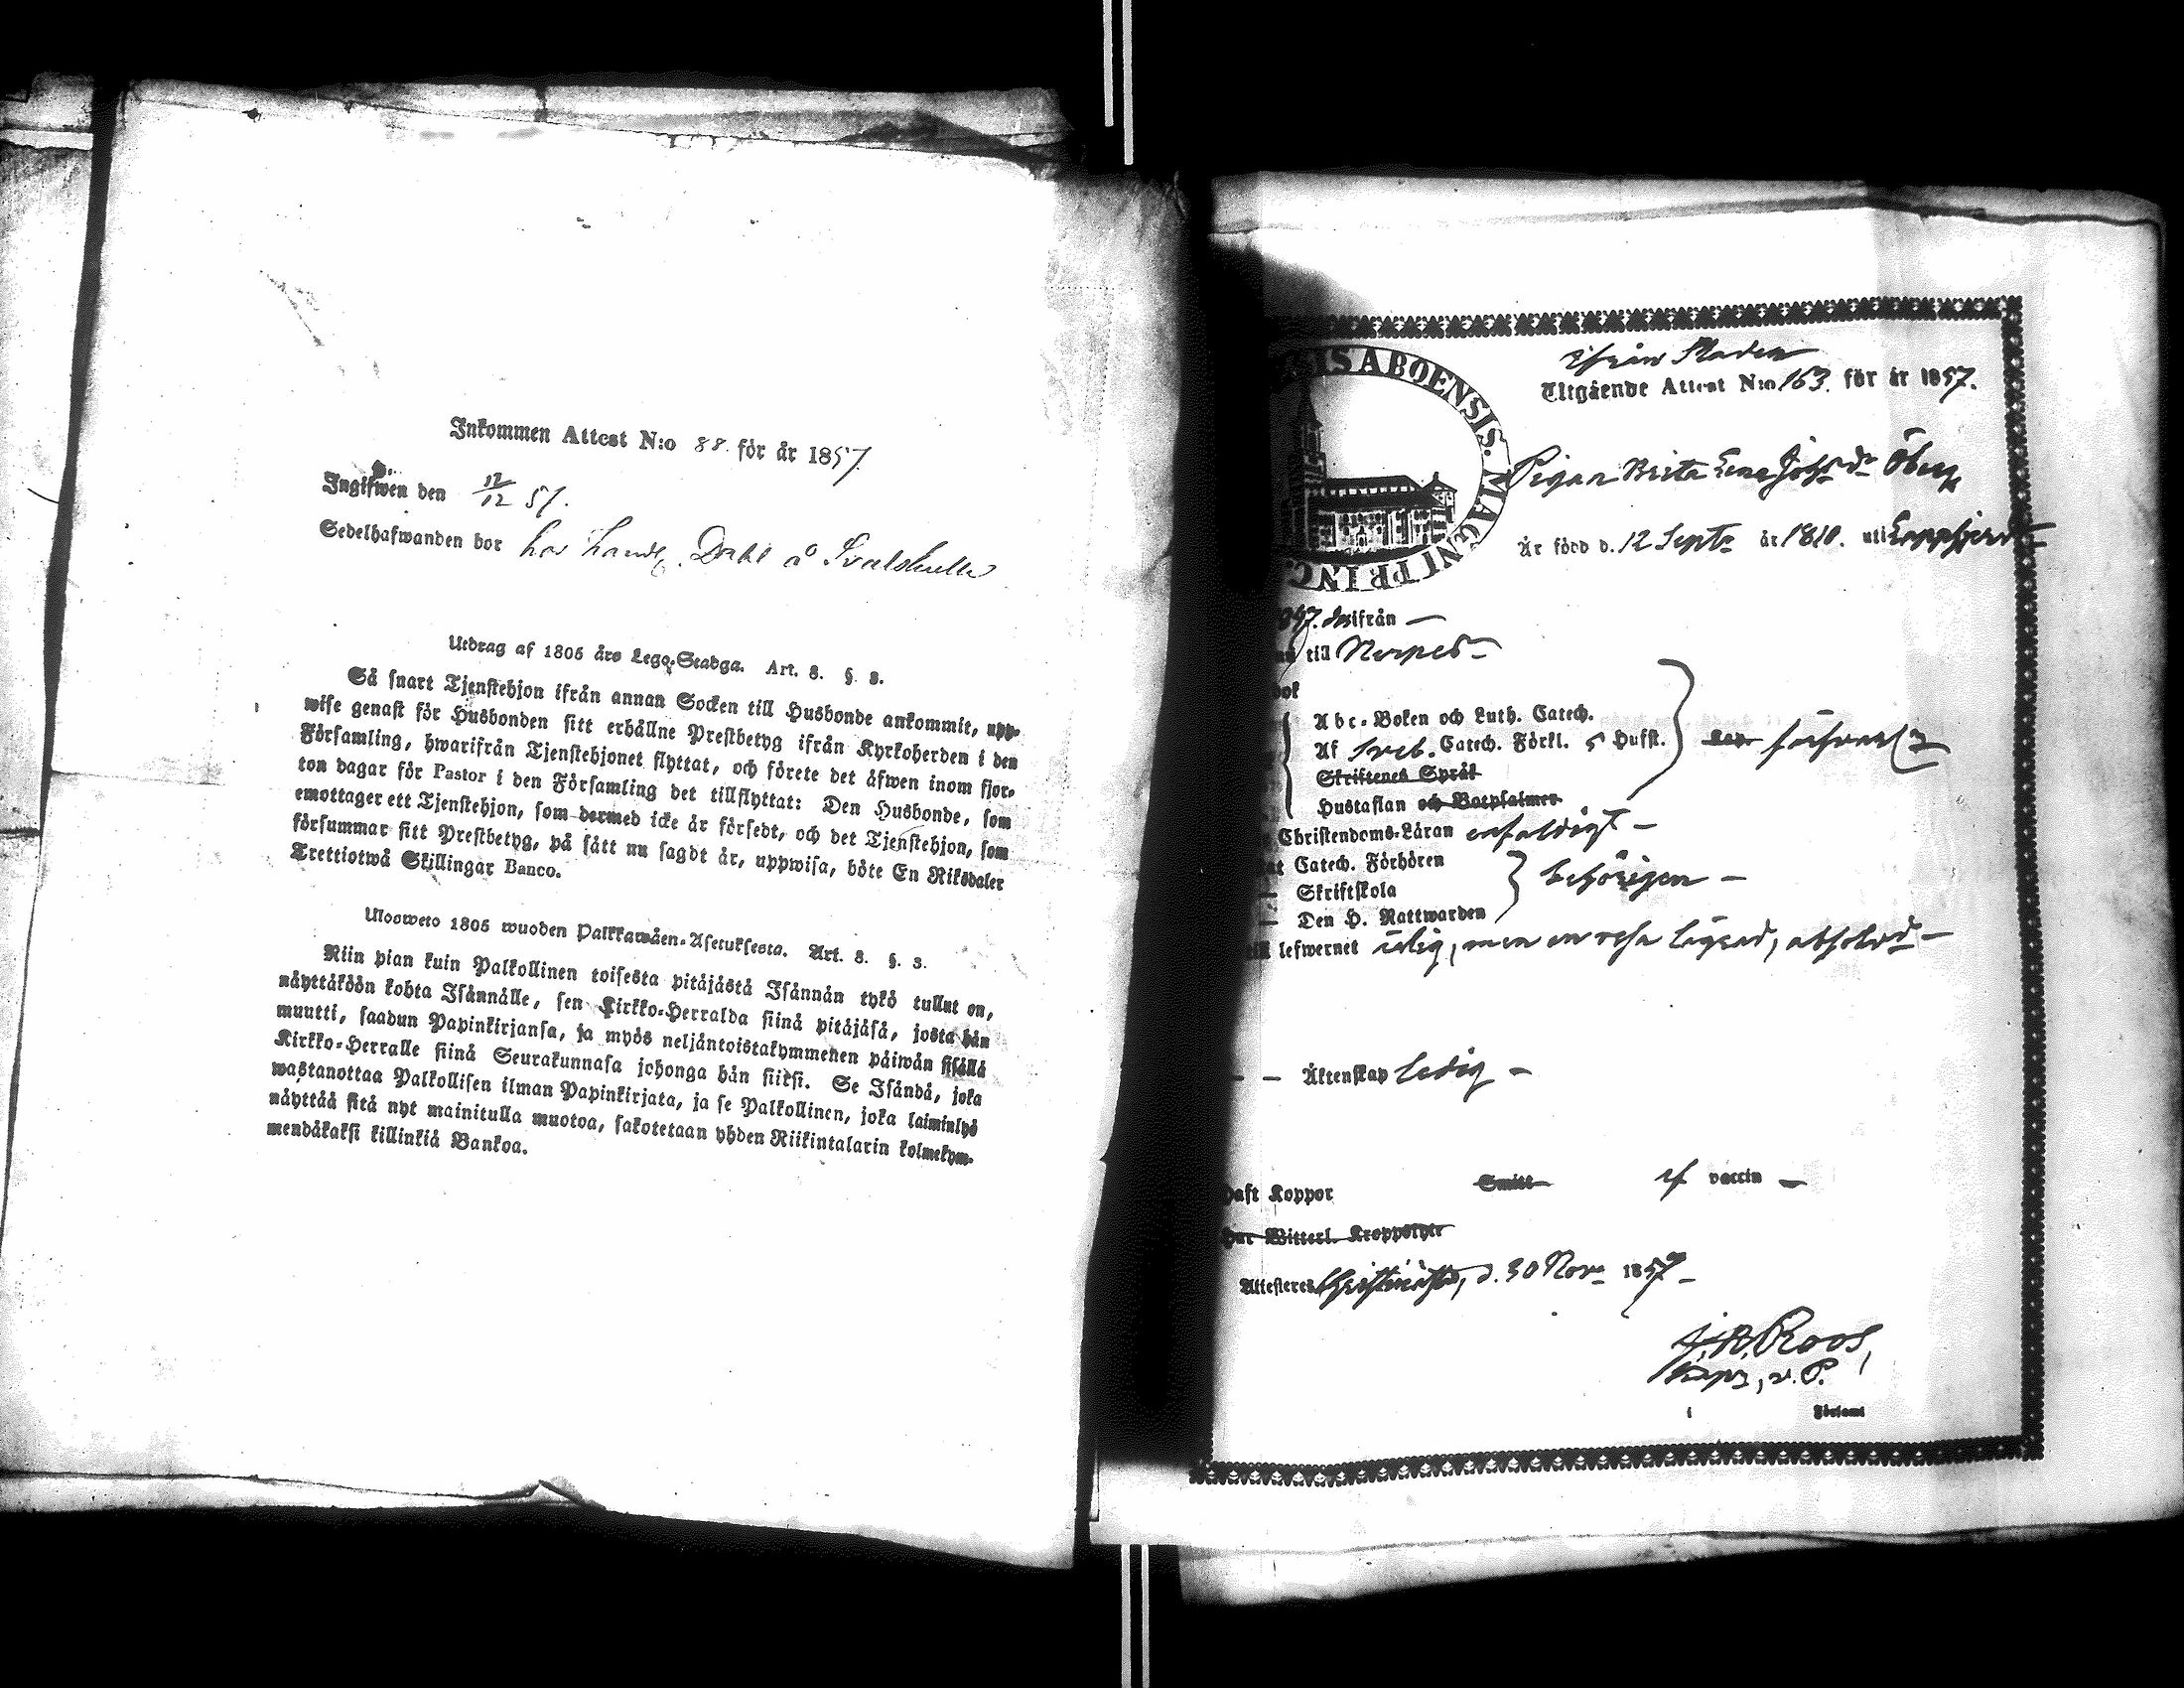 Inkommen Attest N:o 88. för år 1857
Ingifwen den 12/12 57.
Sedelhafwanden bor hos Handl. Dahl å Svalskulla
Utdrag af 1805 års Lego-Stadga. Art. 8. §. 3.
Så snart Tjenstehjon ifrån annan Socken till Husbonde ankommit, upp-
wise genast för Husbonden sitt erhållne Prestbetyg ifrån Kyrkoherden i den
Församling, hwarifrån Tjenstehjonet flyttat, och förete det åfwen inom fjor-
ton dagar för Pastor i den Församling det tillflyttat: Den Husbonde, som
emottager ett Tjenstehjon, som dermed icke är försedt, och det Tjenstehjon, som
försummar sitt Prestbetyg, på sätt nu sagdt är, uppwisa, böte En Riksdaler
Trettiotwå Skillingar Banco.
Ulosweto 1805 wuoden Palkkawäen-Asetuksesta. Art. 8. §. 3.
Niin pian kuin Palkollinen toisesta pitäjästä Isännän tykö tullut on,
näyttäköön kohta Isännälle, sen Kirkko-Herralda siinä pitäjäsä, josta hän
muutti, saadun Papinkirjansa, ja myös neljäntoistakymmenen päiwän sisällä
Kirkko-Herralle siinä Seurakunnasa johonga hän siirsi. Se Isändä, joka
wastanottaa Palkollisen ilman Papinkirjata, ja se Palkollinen, joka laiminlyö
näyttää sitä nyt mainitulla muotoa, sakotetaan yhden Riikintalarin kolmekym-
mendäkaksi killinkiä Bankoa.
SIS ABOENSIS. MAGNI PRINC.
ifrån Staden
Utgående Attest N:o 163. för år 1857.
Pigan Brita Lena Johsdr Öberg
Är född d. 12 Septr år 1810. uti Lappfjerd
1857. ifrån —
till Nerpes —
bok
Abc-Boken och Luth. Catech.
Af Sveb. Catech. Förkl. 5 Hufst.
Skriftenes Språk
Hustaflan och Botpsalmer
Christendoms-Läran enfaldigt —
Catech. Förhören
Skriftskola behörigen —
Den H. Nattwarden
till lefwernet ärlig, men en resa lägrad, absolvd —
— — Äktenskap ledig —
haft Koppor Smitt af vaccin —
har Witterl. Kroppslyte
Attesteres Christinestad, d. 30 Novr 1857 —
Roos,
v. P.
i Församl